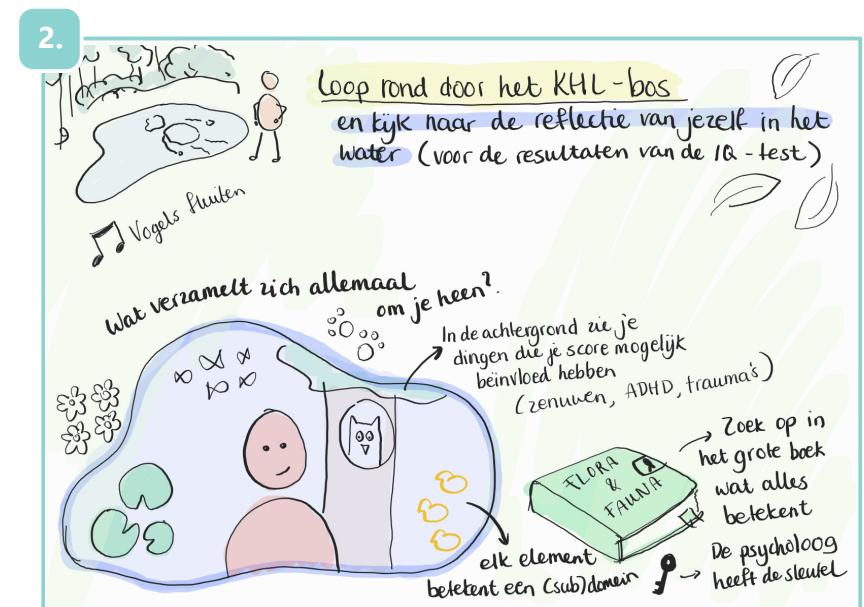 2.
Loop rond door het KHL-bos
en kijk naar de reflectie van jezelf in het
water (voor de resultaten van de IQ-test)
Vogels fluiten
Wat verzamelt zich allemaal
om je heen?
In de achtergrond zie je
dingen die je score mogelijk
beïnvloed hebben
(zenuwen, ADHD, trauma's)
FLORA
&
FAUNA
Zoek op in
het grote boek
wat alles
betekent
elk element
betekent een (sub)domein
De psycholoog
heeft de sleutel